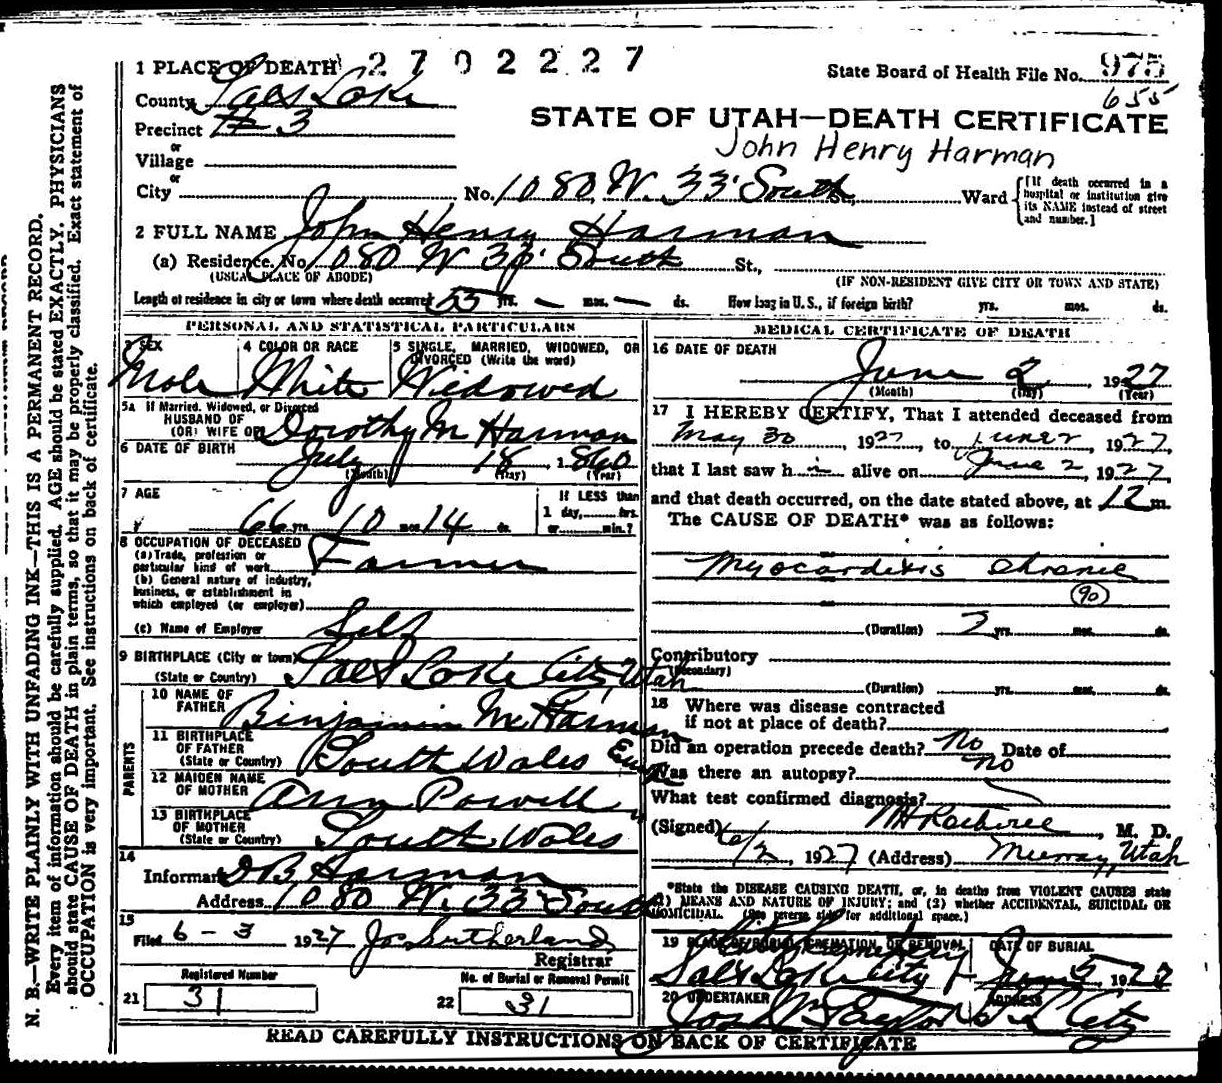 1 PLACE OF DEATH 2702227
State Board of Health File No. 975
655
County Salt Lake
Precinct # 3
STATE OF UTAH—DEATH CERTIFICATE
John Henry Harman
or
Village
or
City No. 1080 W. 33 South St., Ward [If death occurred in a hospital or institution give its NAME instead of street and number.]
2 FULL NAME John Henry Harman
(a) Residence. No. 1080 W 33 South St.,
(USUAL PLACE OF ABODE) (IF NON-RESIDENT GIVE CITY OR TOWN AND STATE)
Length of residence in city or town where death occurred 55 yrs. — mos. — ds. How long in U. S., if foreign birth? yrs. mos. ds.
PERSONAL AND STATISTICAL PARTICULARS
3 SEX Male
4 COLOR OR RACE White
5 SINGLE, MARRIED, WIDOWED, OR DIVORCED (Write the word) Widowed
5a If Married, Widowed, or Divorced
HUSBAND OF
(OR) WIFE OF Dorothy M Harman
6 DATE OF BIRTH July 18, 1860
(Month) (Day) (Year)
7 AGE 66 yrs. 10 mos. 14 ds.
If LESS than
1 day, hrs.
or min.?
8 OCCUPATION OF DECEASED
(a) Trade, profession or
particular kind of work Farmer
(b) General nature of industry,
business, or establishment in
which employed (or employer)
(c) Name of Employer Self
9 BIRTHPLACE (City or town)
(State or Country) Salt Lake City, Utah
PARENTS
10 NAME OF
FATHER Binjamin M Harman
11 BIRTHPLACE
OF FATHER
(State or Country) South Wales
12 MAIDEN NAME
OF MOTHER Ann Powell
13 BIRTHPLACE
OF MOTHER
(State or Country) South Wales
14
Informant D B Harman
Address 1080 W. 33 South
15
Filed 6-3 1927 Jas Sutherland
Registrar
Registered Number
21 31
No. of Burial or Removal Permit
22 31
MEDICAL CERTIFICATE OF DEATH
16 DATE OF DEATH
June 2, 1927
(Month) (Day) (Year)
17 I HEREBY CERTIFY, That I attended deceased from
May 30, 1927, to June 2, 1927,
that I last saw h i alive on June 2, 1927
and that death occurred, on the date stated above, at 12 m.
The CAUSE OF DEATH* was as follows:
Myocarditis Chronic
90
(Duration) 2 yrs. mos. ds.
Contributory
(Secondary)
(Duration) yrs. mos. ds.
18 Where was disease contracted
if not at place of death?
Did an operation precede death? No Date of
Was there an autopsy? no
What test confirmed diagnosis?
(Signed) M. D.
6/2, 1927 (Address) Murray, Utah
*State the DISEASE CAUSING DEATH, or, in deaths from VIOLENT CAUSES state
(1) MEANS AND NATURE OF INJURY; and (2) whether ACCIDENTAL, SUICIDAL OR
HOMICIDAL. (See reverse side for additional space.)
19 PLACE OF BURIAL, CREMATION, OR REMOVAL DATE OF BURIAL
City Cemetery
Salt Lake City June 5, 1927
20 UNDERTAKER ADDRESS
Jos. Wm Taylor S L City
READ CAREFULLY INSTRUCTIONS ON BACK OF CERTIFICATE
N. B.—WRITE PLAINLY WITH UNFADING INK—THIS IS A PERMANENT RECORD.
Every item of information should be carefully supplied. AGE should be stated EXACTLY. PHYSICIANS
should state CAUSE OF DEATH in plain terms, so that it may be properly classified. Exact statement of
OCCUPATION is very important. See instructions on back of certificate.